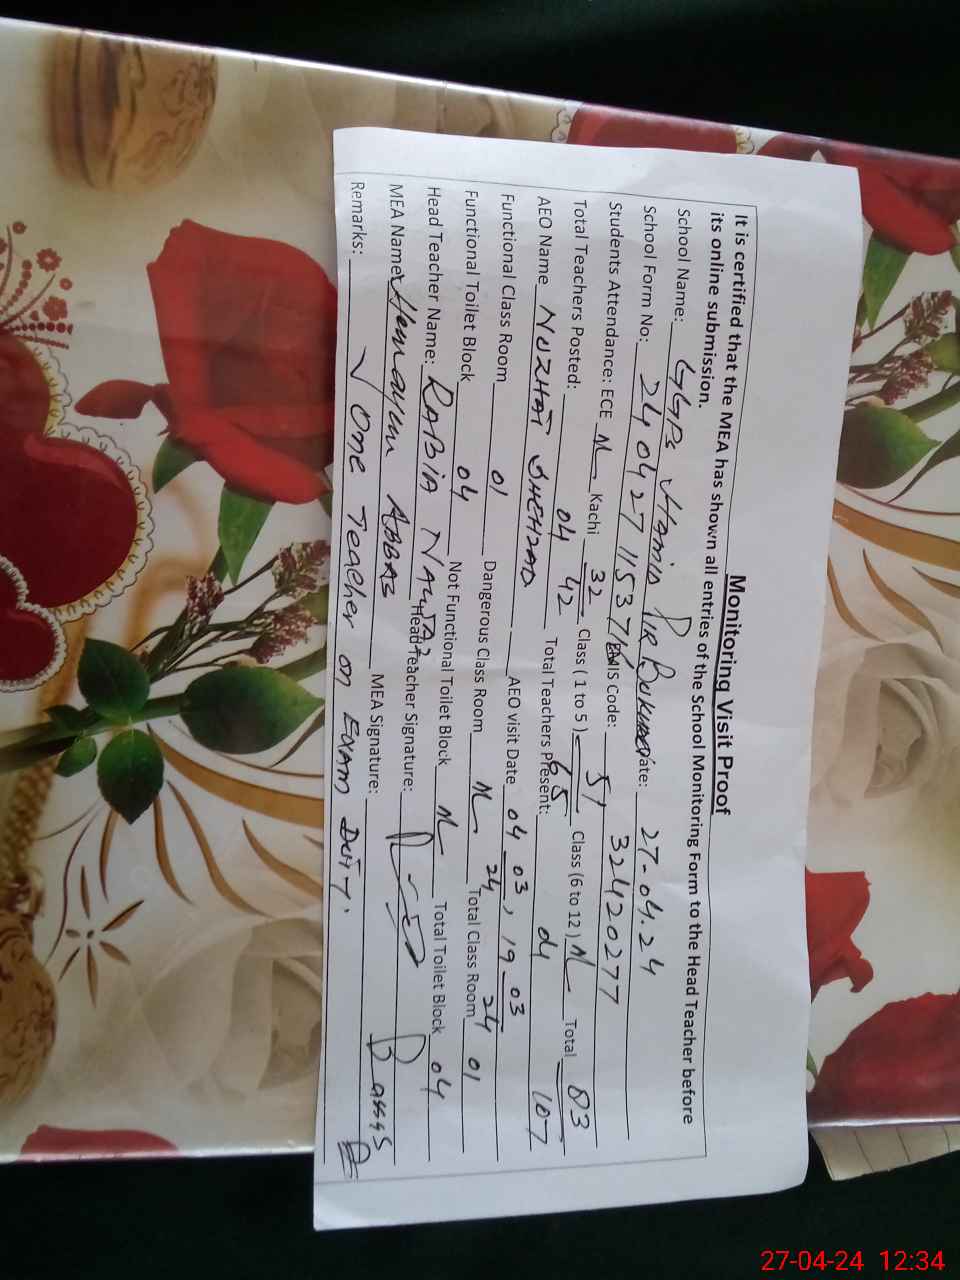 Monitoring Visit Proof
It is certified that the MEA has shown all entries of the School Monitoring Form to the Head Teacher before
its online submission.
School Name: GGPS Hamid PIR Bukhari Date: 27-04.24
School Form No: 24 04 27 1153 7 EMIS Code: 32420277
Students Attendance: ECE N Kachi 32/42 Class ( 1 to 5 ) 51/65 Class (6 to 12 ) N Total 83/107
Total Teachers Posted: 04 Total Teachers Present: 04
AEO Name NUZHAT SHEHZAD AEO visit Date 04_03_24, 19_03_24
Functional Class Room 01 Dangerous Class Room N Total Class Room 01
Functional Toilet Block 04 Not Functional Toilet Block N Total Toilet Block 04
Head Teacher Name: RABIA NAWAZ Head Teacher Signature:
MEA Name: Humayun ABBAS MEA Signature:
Remarks: ✓ One Teacher on Exam Duty.
27-04-24 12:34